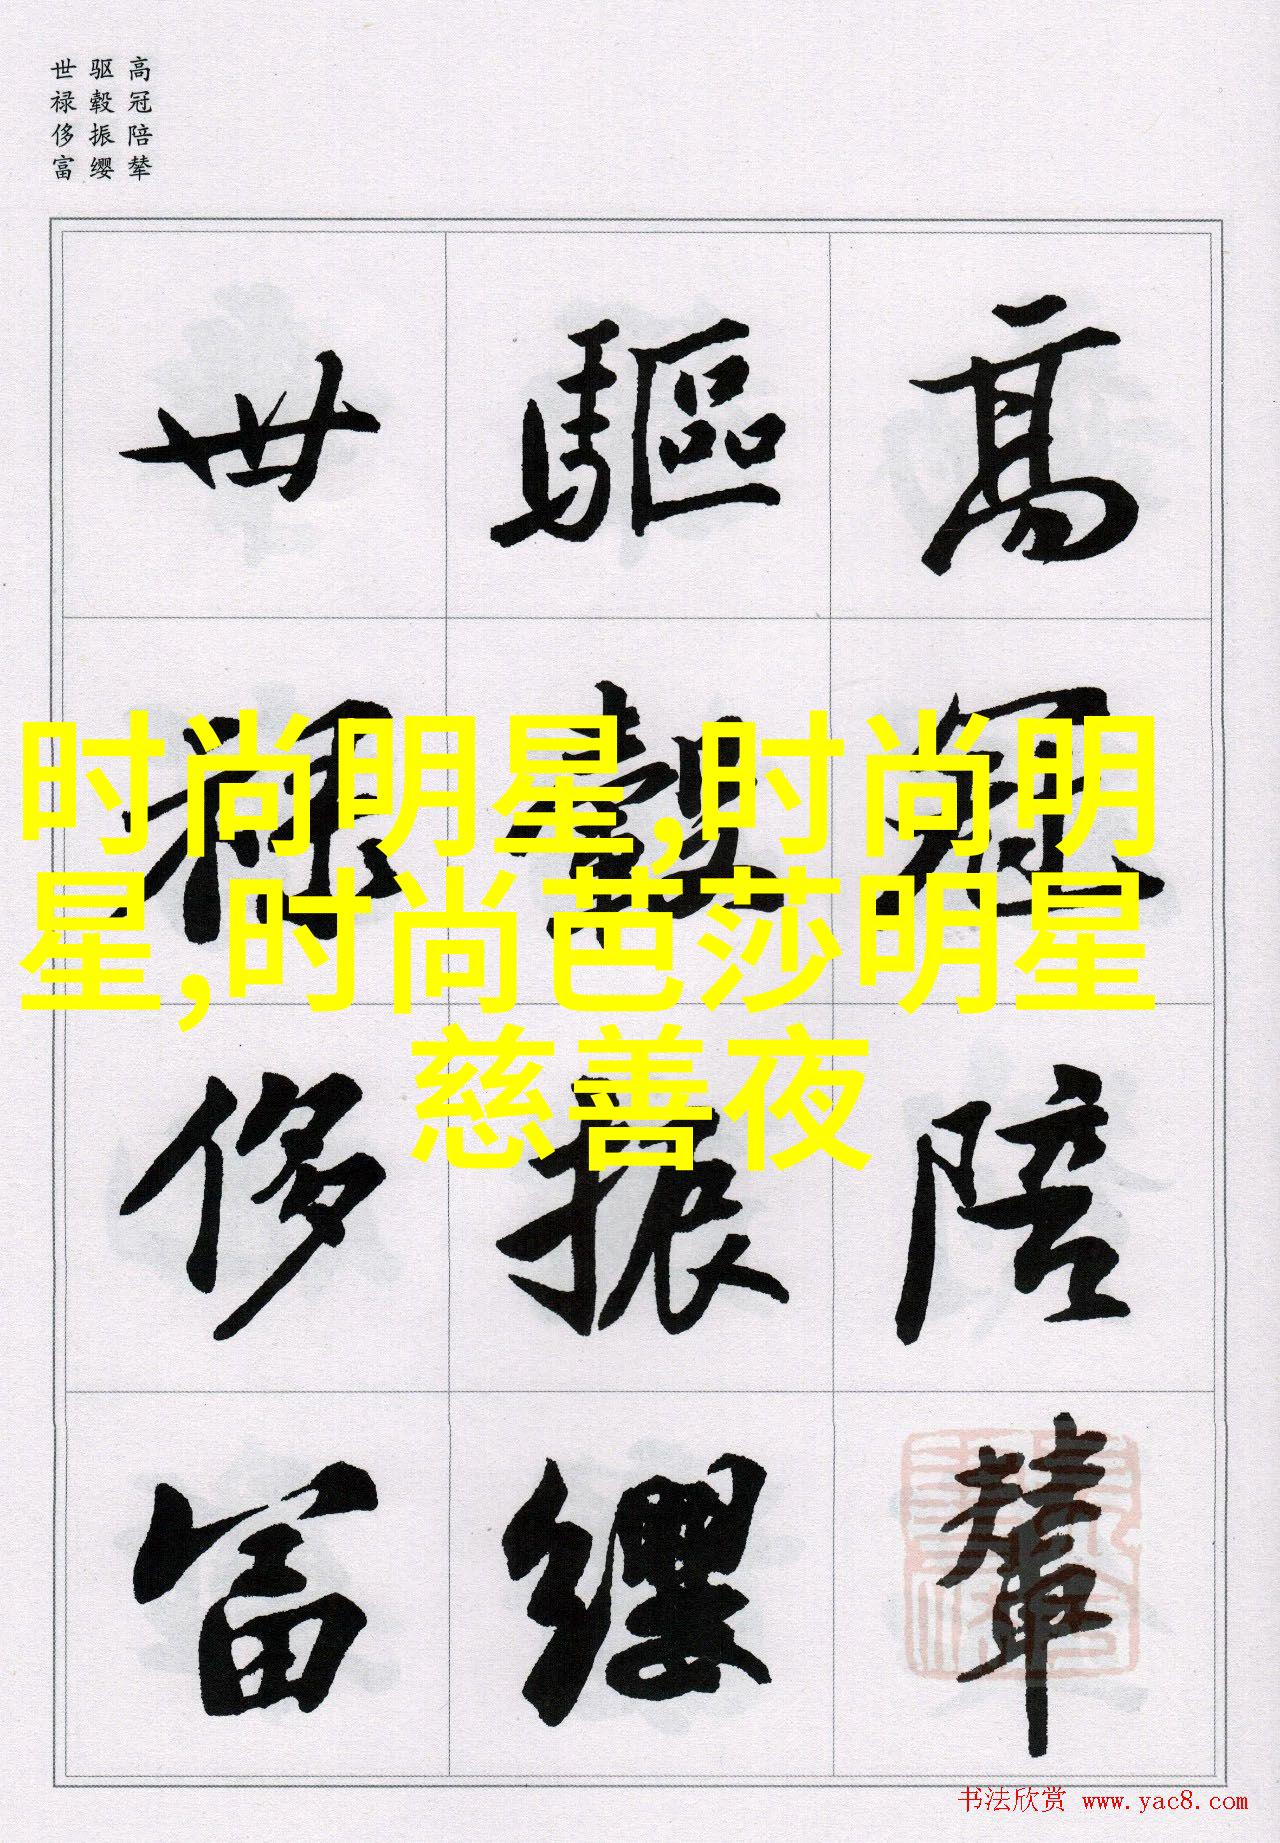 高冠陪辇
驱毂振缨
世禄侈富
高冠陪輦
驅轂振纓
世禄侈富
时尚明星,时尚明
星,时尚芭莎明星
慈善夜
书法欣赏 www.yac8.com